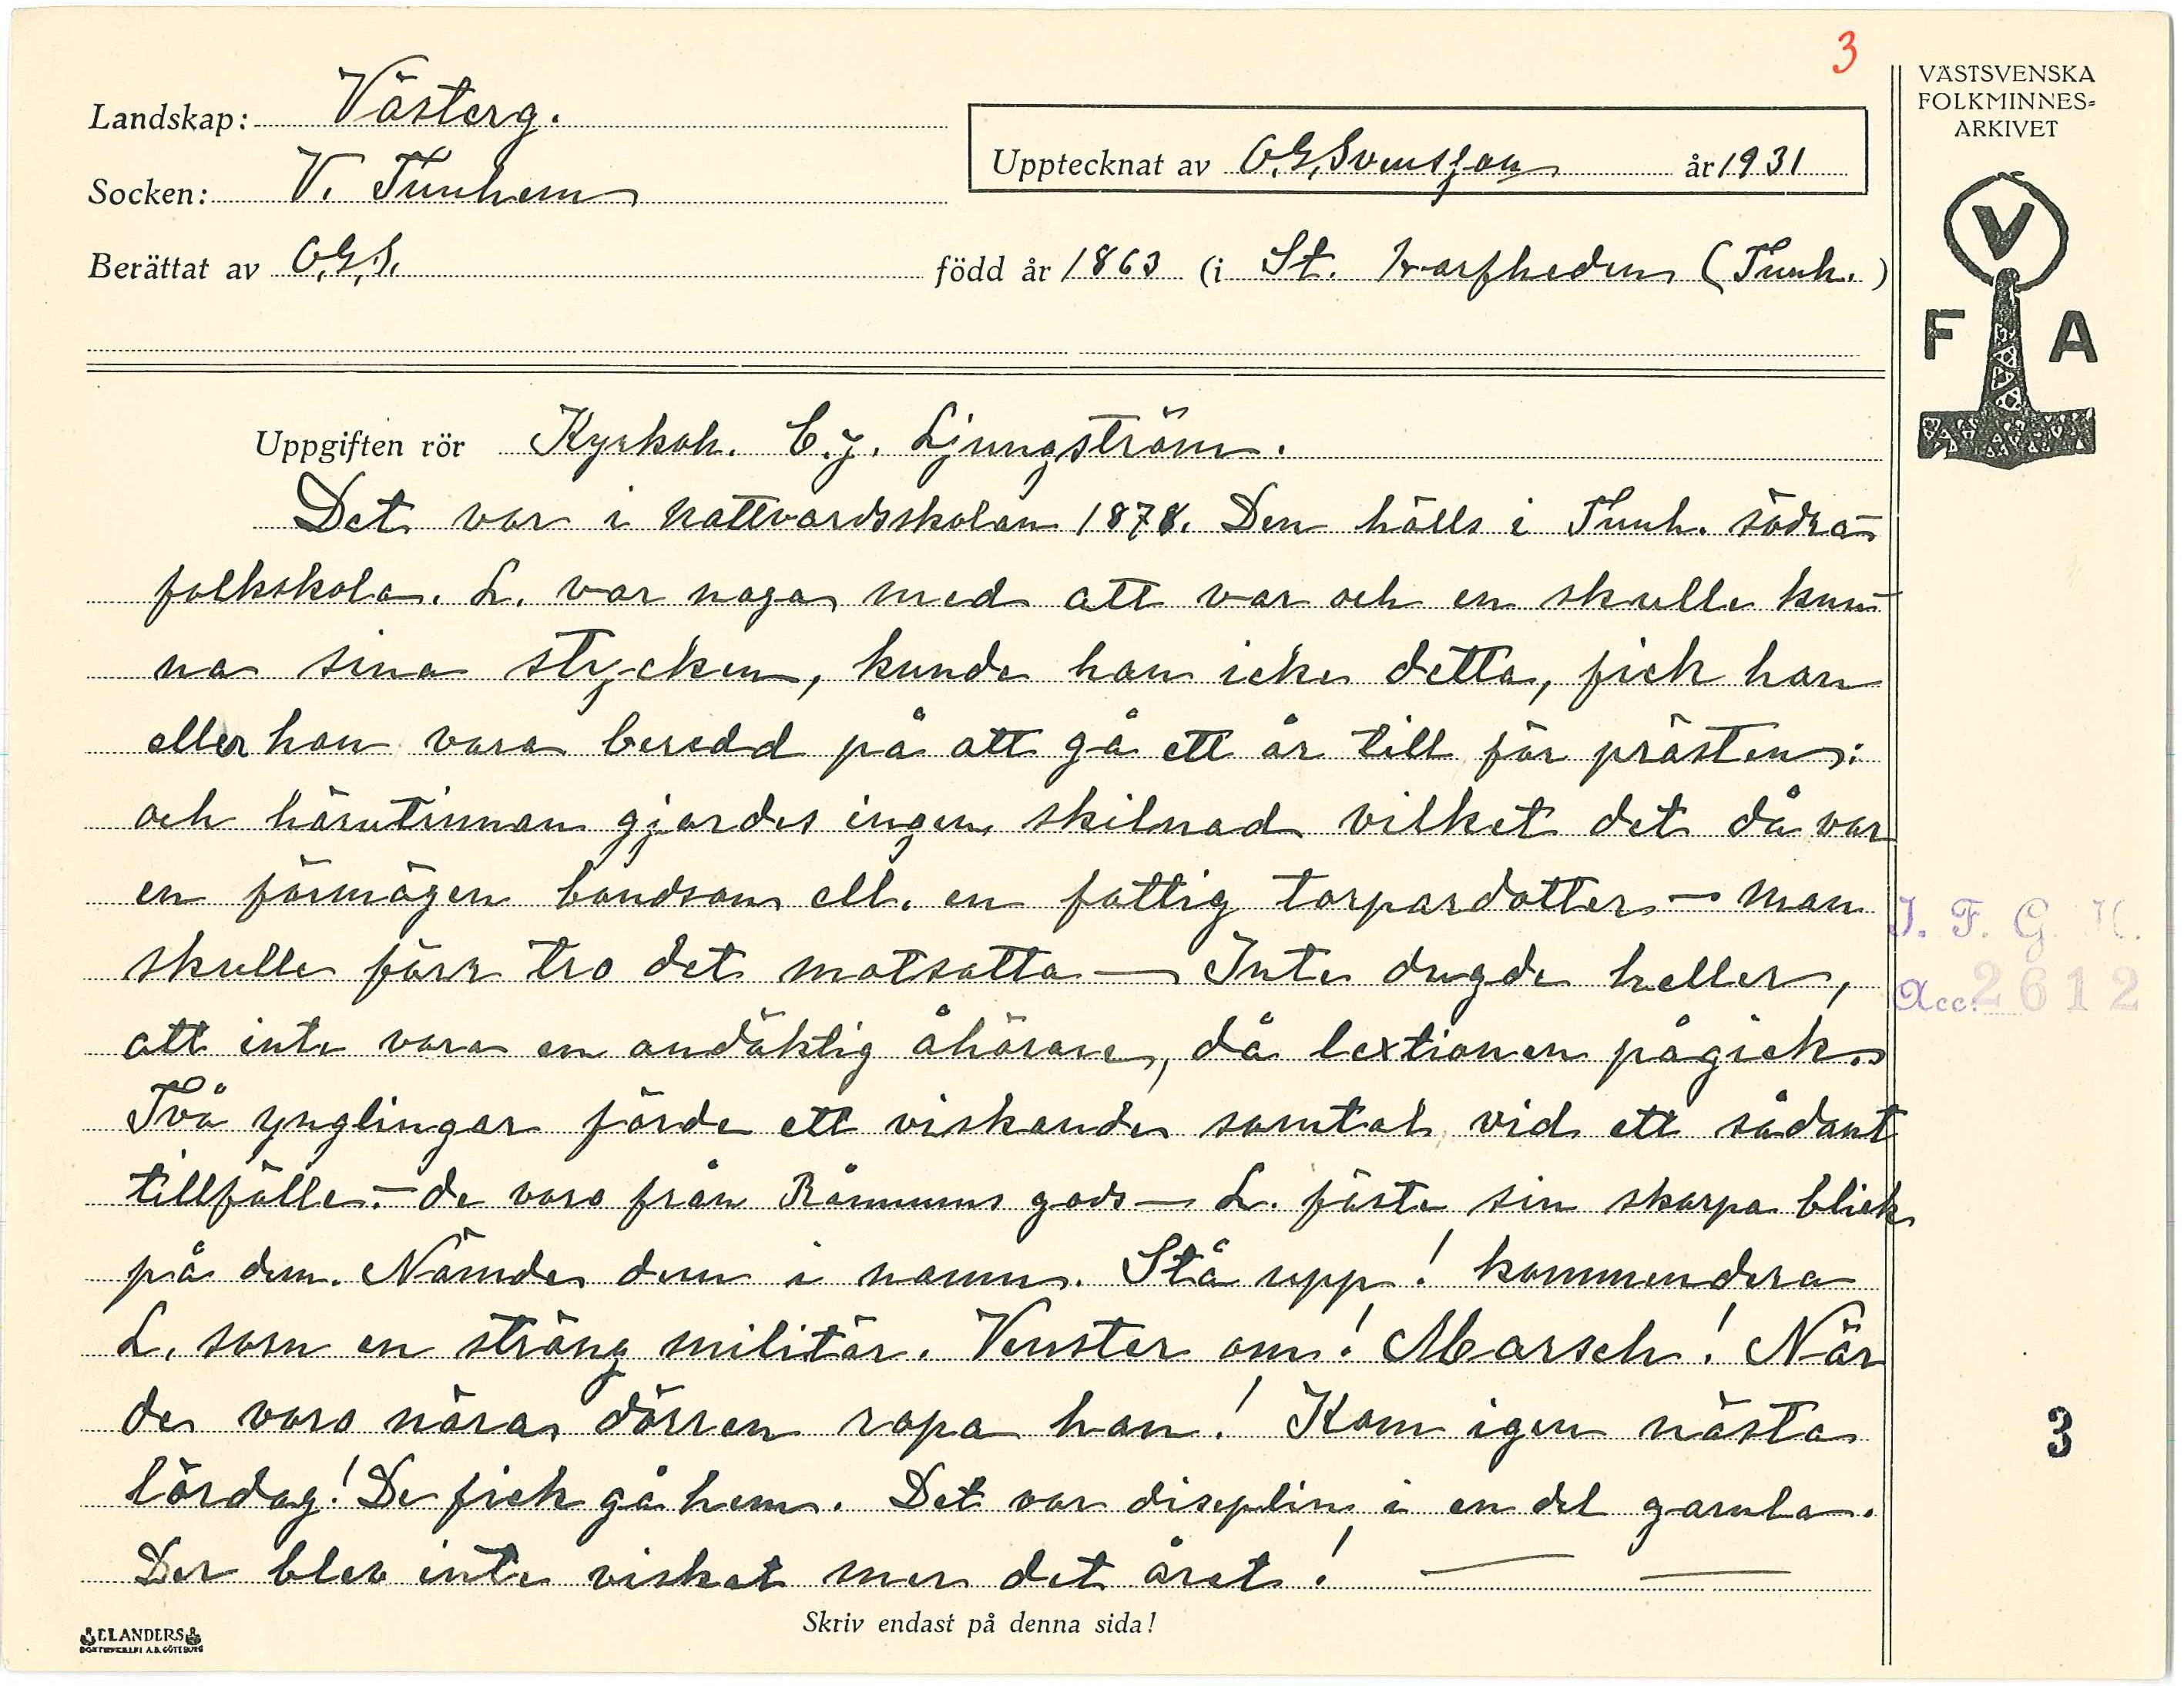 3
VÄSTSVENSKA
FOLKMINNES=
ARKIVET
Landskap: Västerg.
Upptecknat av O.G. Svensson år 1931
Socken: V. Tunhem
Berättat av O.G.S. född år 1863 (i St. Kvarfheden (Tunh.)
V
F A
Uppgiften rör Kyrkoh. C.J. Ljungström.
Det var i nattvardsskolan 1878. Den hölls i Tunh. södra
folkskola. L. var noga med att var och en skulle kun-
na sina stycken, kunde han icke detta, fick han
eller hon vara beredd på att gå ett år till för prästen:
och härutinnan gjordes ingen skilnad vilket det då var
en förmögen bondson ell. en fattig torpardotter — man
skulle förr tro det motsatta — Inte dugde heller,
att inte vara en andäktig åhörare, då lextionen pågick.
Två ynglingar förde ett viskande samtal vid ett sådant
tillfälle. — de voro från Rånnums gods — L. fäste sin skarpa blick
på dem. Nämde dem i namn. Stå upp! kommendera
L. som en sträng militär. Venster om! Marsch! När
de voro nära dörren ropa han! Kom igen nästa
lördag! De fick gå hem. Det var disciplin i en del gamla.
Der blev inte viskat mer det året! — —
J. F. G. H.
Acc. 2612
3
Skriv endast på denna sida!
ELANDERS
BOKTRYCKERI A.B. GÖTEBORG